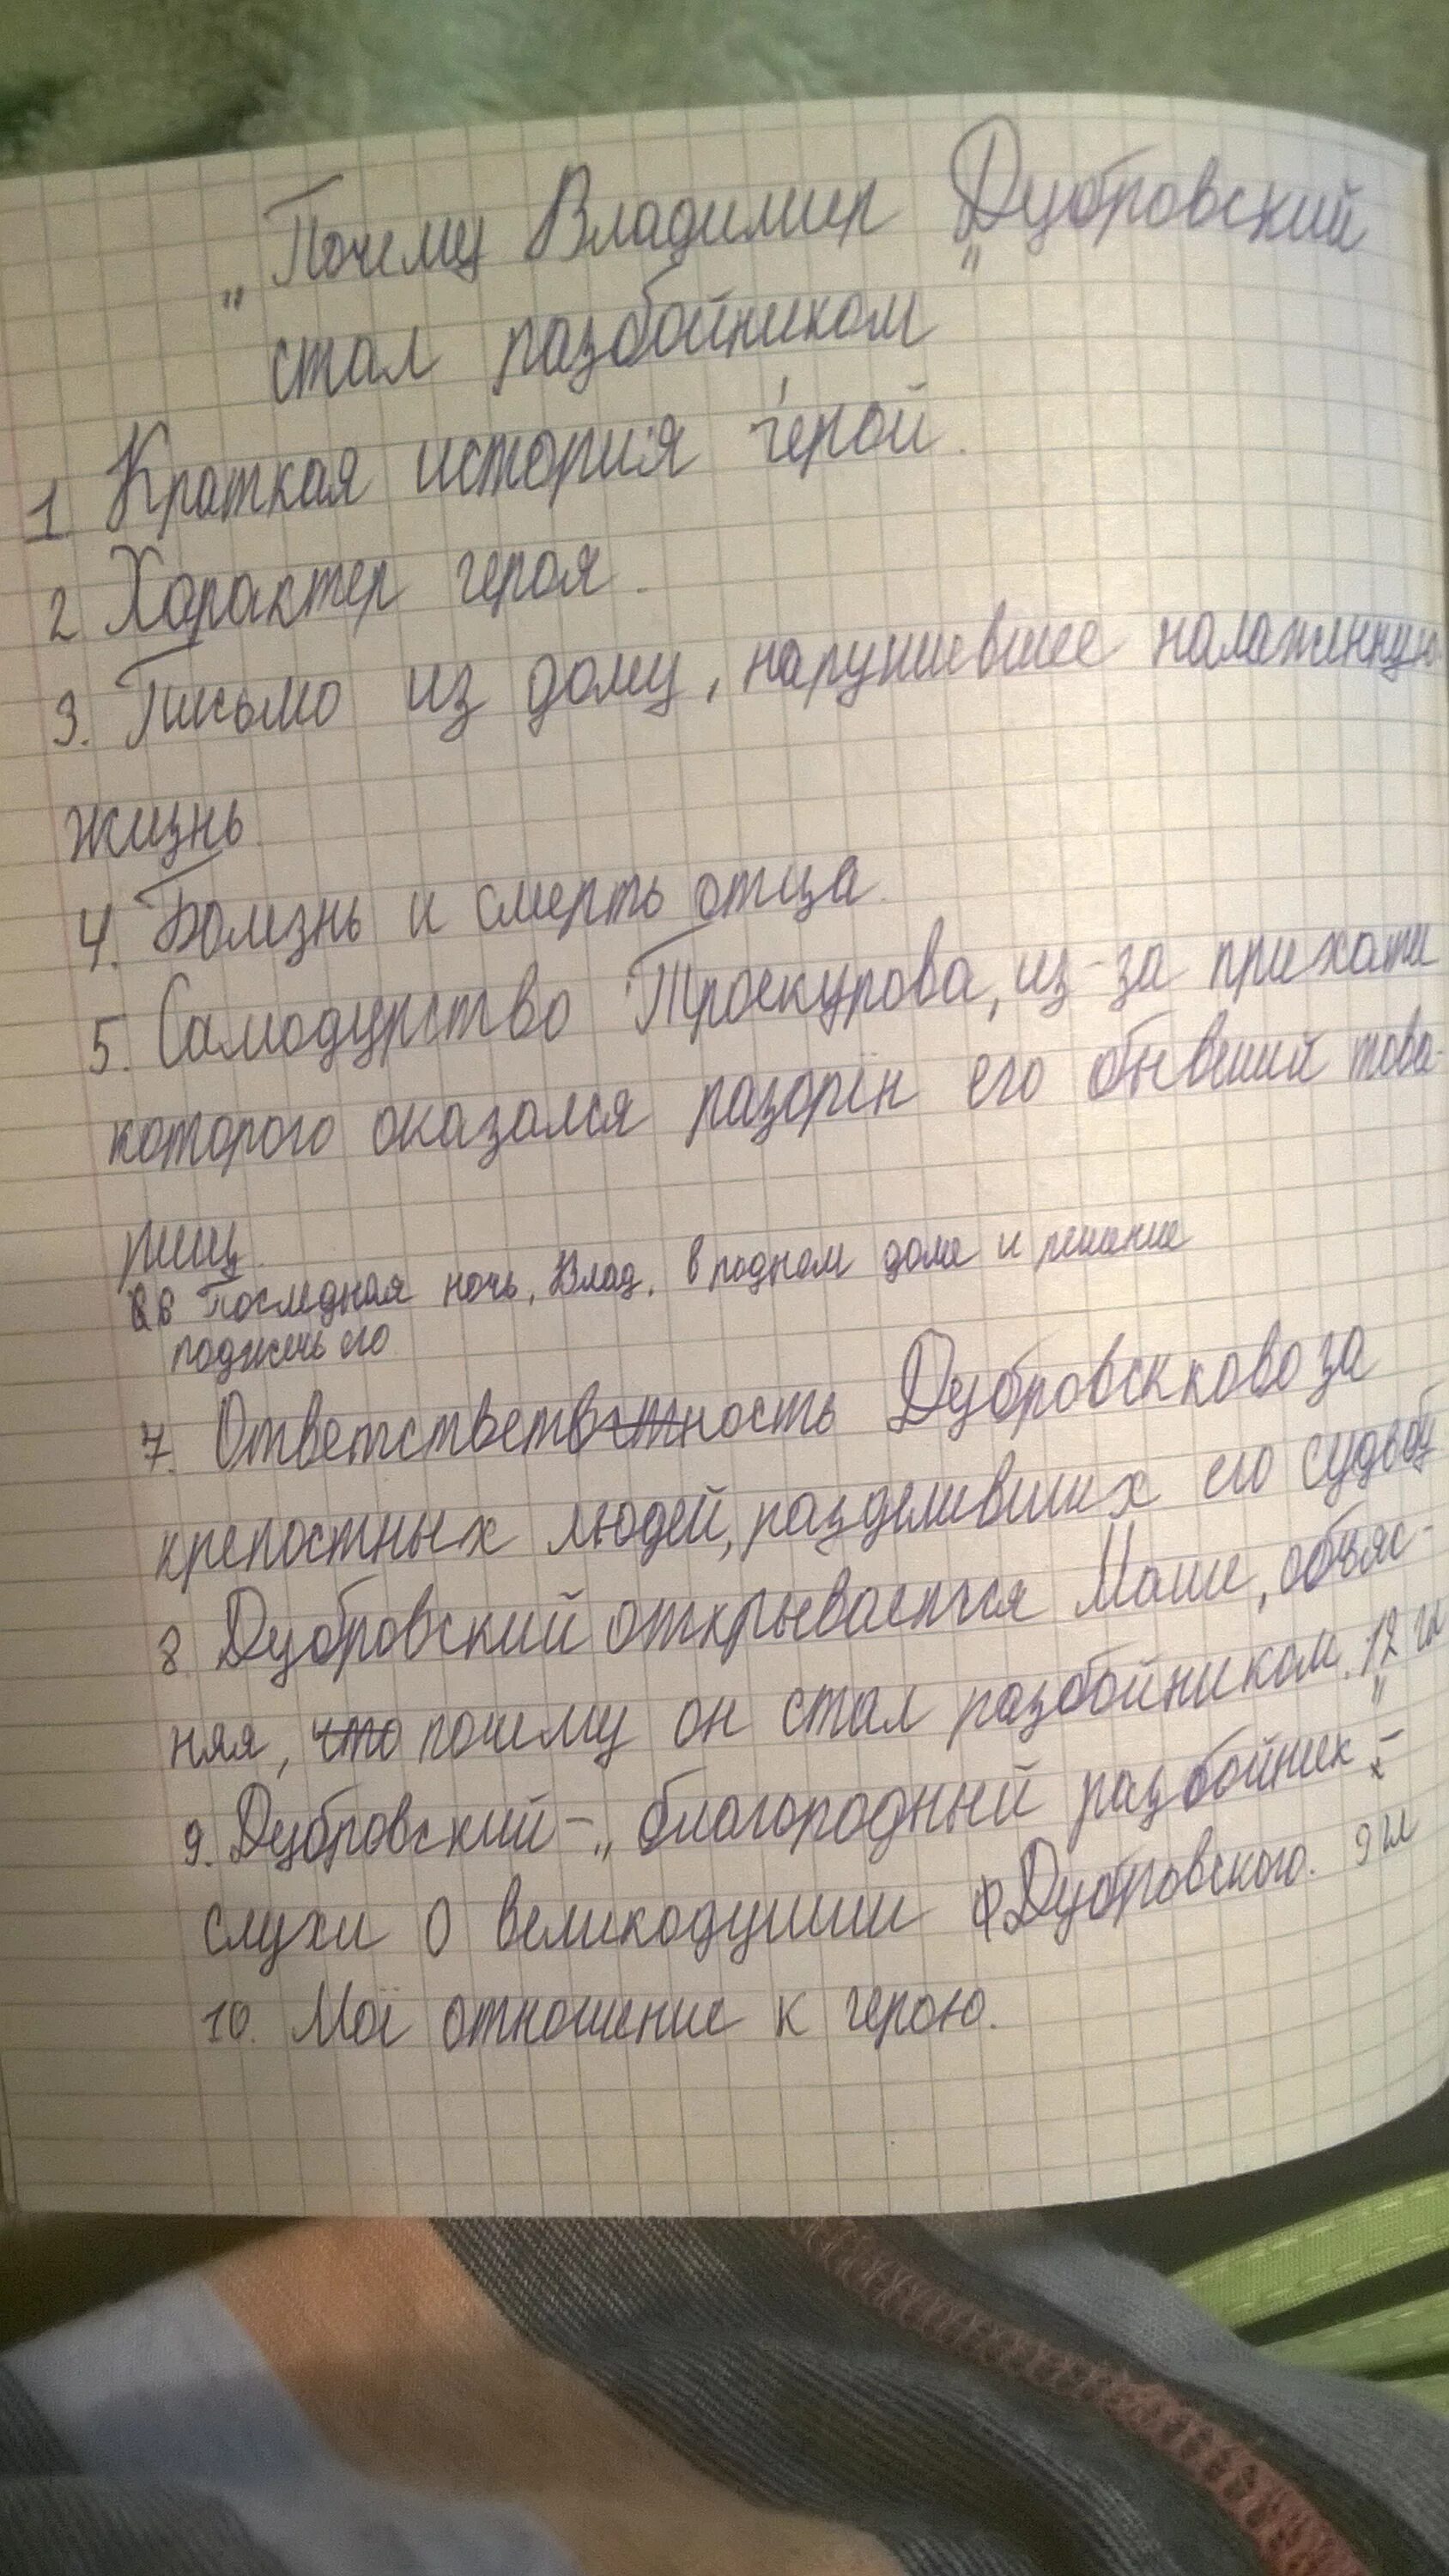 „Почему Владимир „Дубровский
стал разбойником
1 Краткая история герой.
2 Характер героя.
3. Письмо из дому, нарушившее налаженную
жизнь.
4. Болезнь и смерть отца.
5. Самодурство Троекурова, из-за прихоти
которого оказался разорён его бывший това-
рищ.
6 Последняя ночь, Влад. в родном доме и решение
поджечь его
7. Ответственность Дубровскково за
крепостных людей, разделивших его судьбу
8 Дубровский открывается Маше, объяс-
няя, что почему он стал разбойником. 12 гл
9. Дубровский – „благородный разбойник":
слухи о великодушии Дубровского. 9 гл
10. Моё отношение к герою.